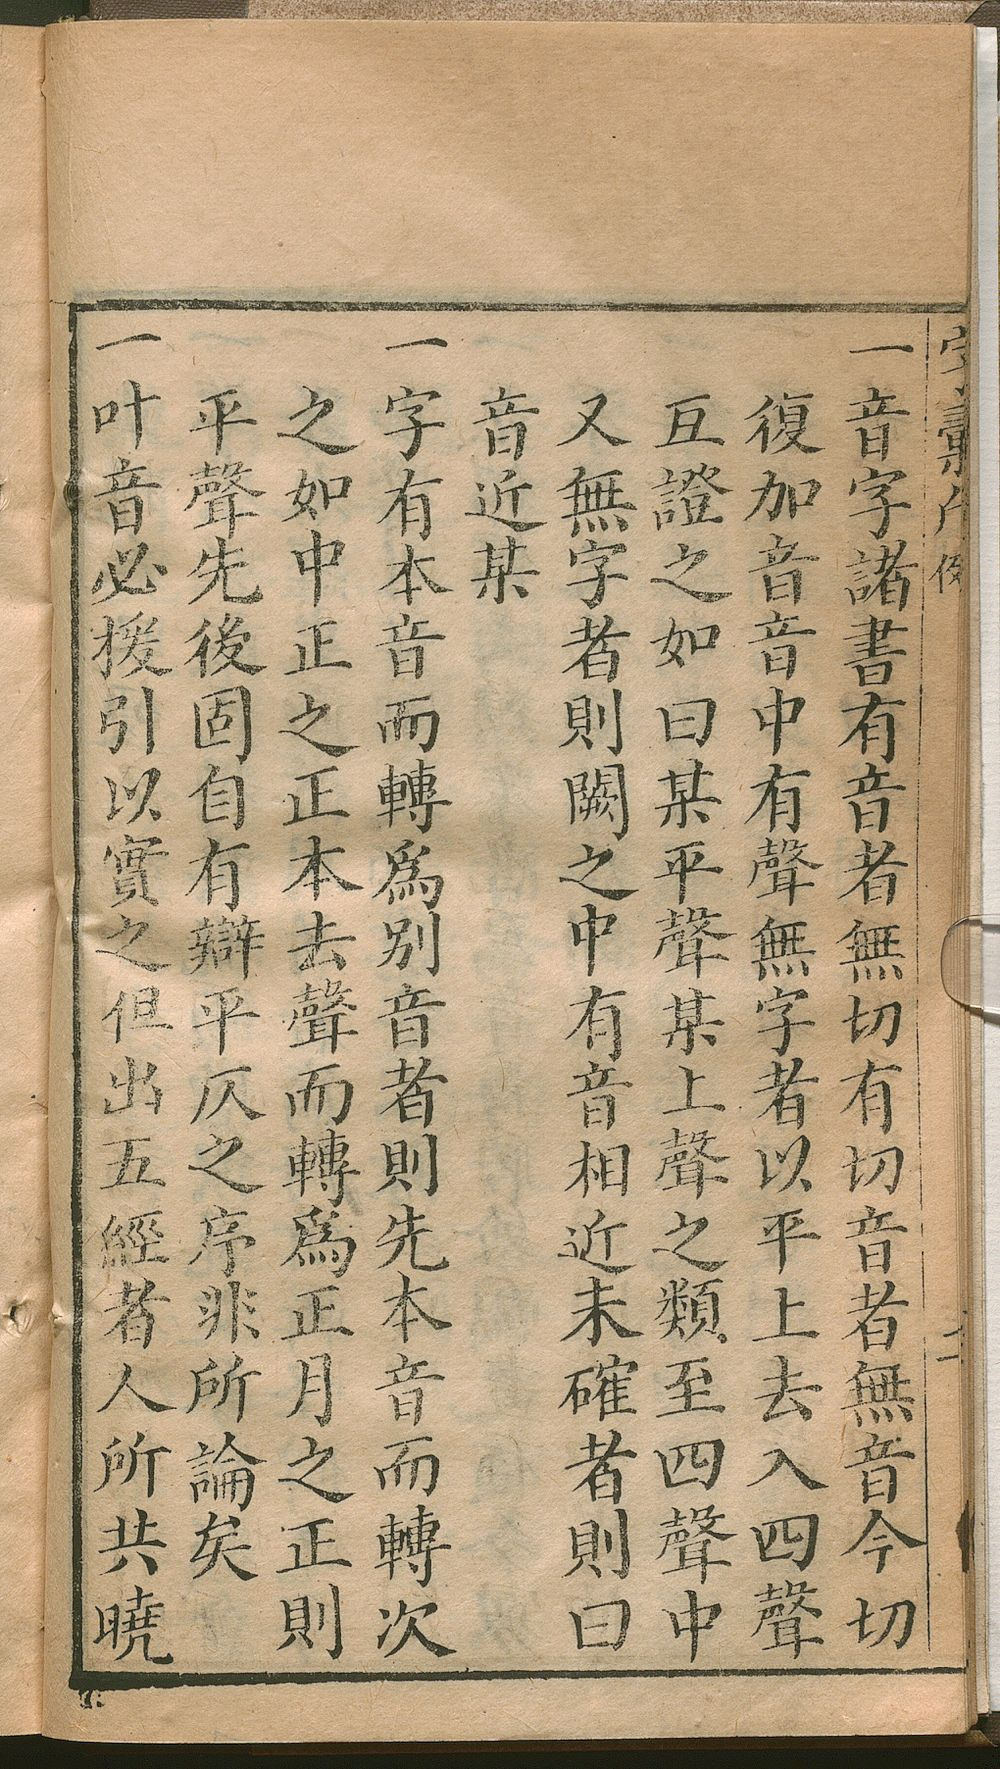 一音字諸書有音者無切有切音者無音今切
復加音音中有聲無字者以平上去入四聲
互證之如曰某平聲某上聲之類至四聲中
又無字者則闕之中有音相近未確者則曰
音近某
一字有本音而轉爲别音者則先本音而轉次
之如中正之正本去聲而轉爲正月之正則
平聲先後固自有辯平仄之序非所論矣
一叶音必援引以實之但出五經者人所共曉